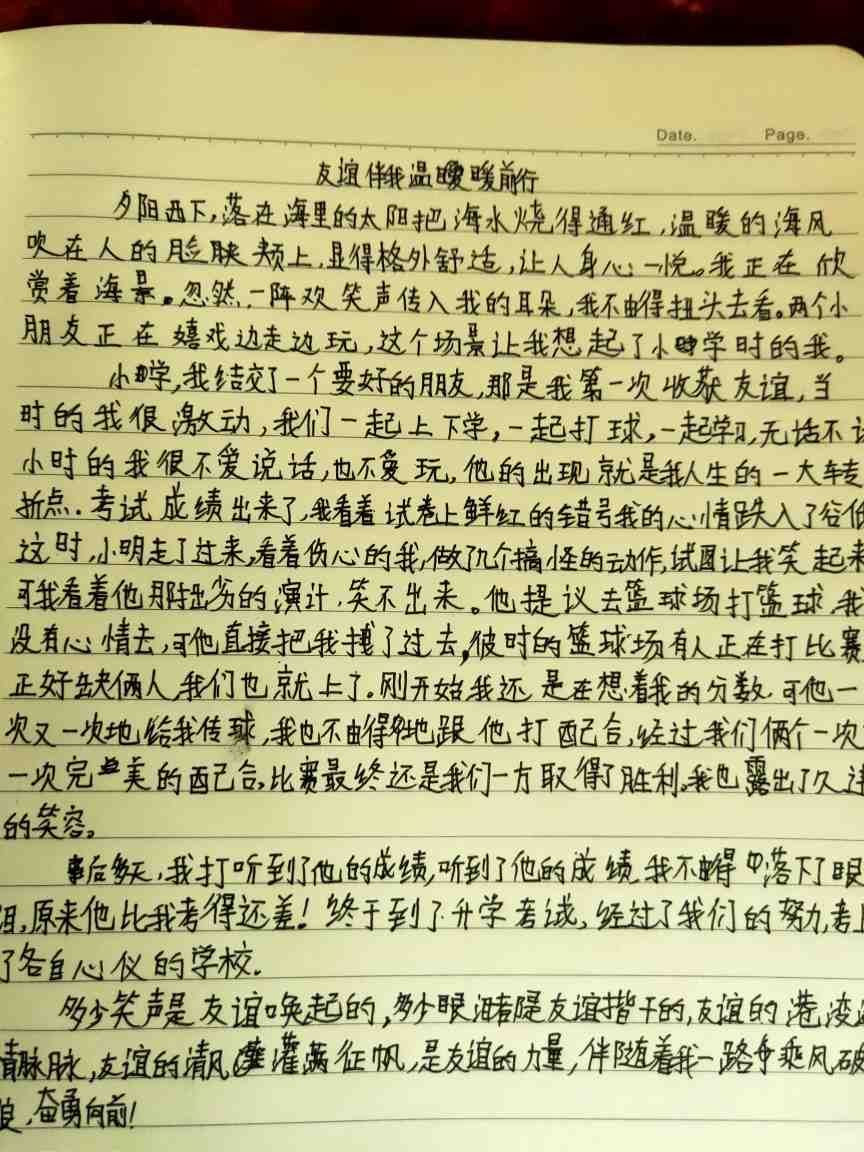 Date. Page.
友谊伴我温暖前行
夕阳西下,落在海里的太阳把海水烧得通红,温暖的海风
吹在人的脸颊上,显得格外舒适,让人身心一悦。我正在欣
赏着海景。忽然,一阵欢笑声传入我的耳朵,我不由得扭头去看。两个小
朋友正在嬉戏边走边玩,这个场景让我想起了小学时的我。
小学,我结交了一个要好的朋友,那是我第一次收获友谊,当
时的我很激动,我们一起上下学,一起打球,一起学习,无话不
小时的我很不爱说话,也不爱玩,他的出现就是我人生的一大转
折点.考试成绩出来了,我看着试卷上鲜红的错号我的心情跌入了谷低
这时,小明走了过来,看着伤心的我,做了几个搞怪的动作,试图让我笑起来
可我看着他那拙劣的演计,笑不出来。他提议去篮球场打篮球,我
没有心情去,可他直接把我拽了过去,彼时的篮球场有人正在打比赛
正好缺俩人,我们也就上了。刚开始,我还是在想着我的分数,可他一
次又一次地给我传球,我也不由得地跟他打配合,经过我们俩个一次
一次完美的配合,比赛最终还是我们一方取得了胜利,我也露出了久违
的笑容。
事后多天,我打听到了他的成绩,听到了他的成绩,我不由得落下了眼
泪,原来他比我考得还差!终于到了升学考试,经过了我们的努力,考上
了各自心仪的学校.
多少笑声是友谊唤起的,多少眼泪都是友谊揩干的,友谊的港湾
情脉脉,友谊的清风灌满征帆,是友谊的力量,伴随着我一路乘风破
浪,奋勇向前!